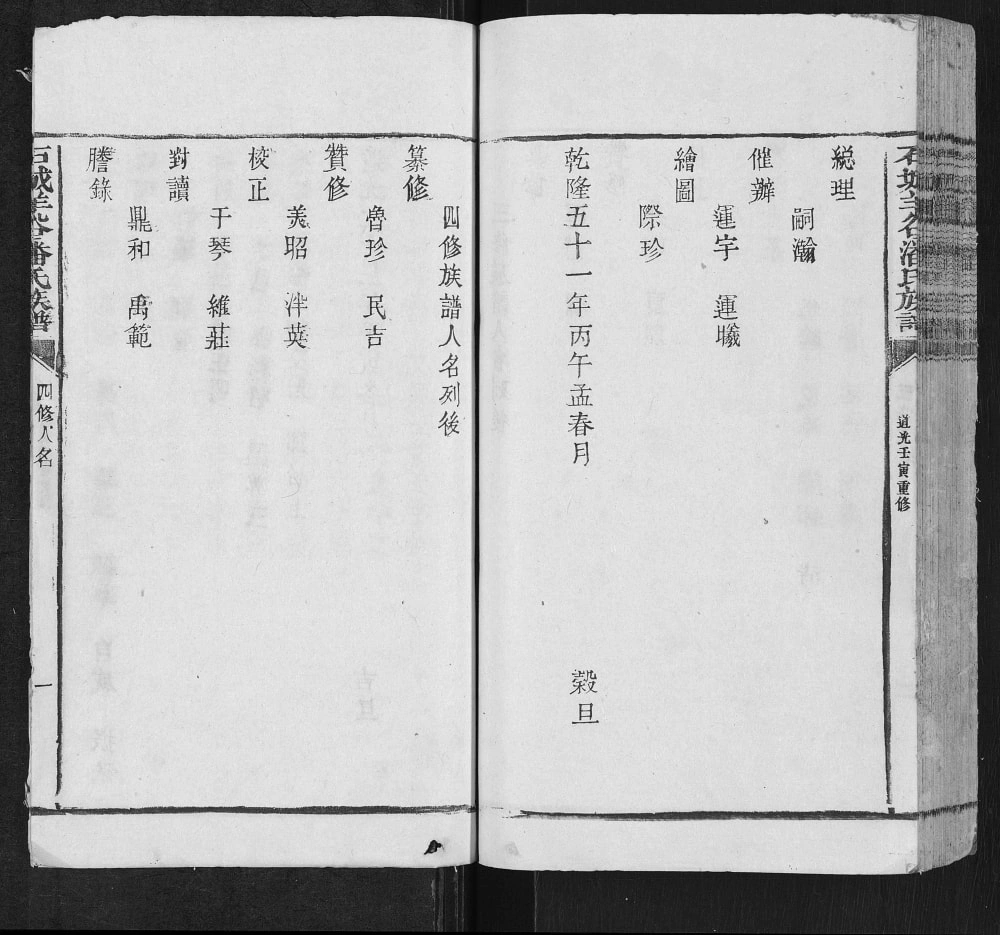 道光壬寅重修
総理
嗣瀚
催辦
運宇 運曦
繪圖
際珍
乾隆五十一年丙午孟春月 榖旦
四修族譜人名列後
纂修
魯珍 民吉
贊修
美昭 泮英
校正
于琴 維莊
對讀
鼎和 禹範
謄錄
潘氏族譜
四修人名
一